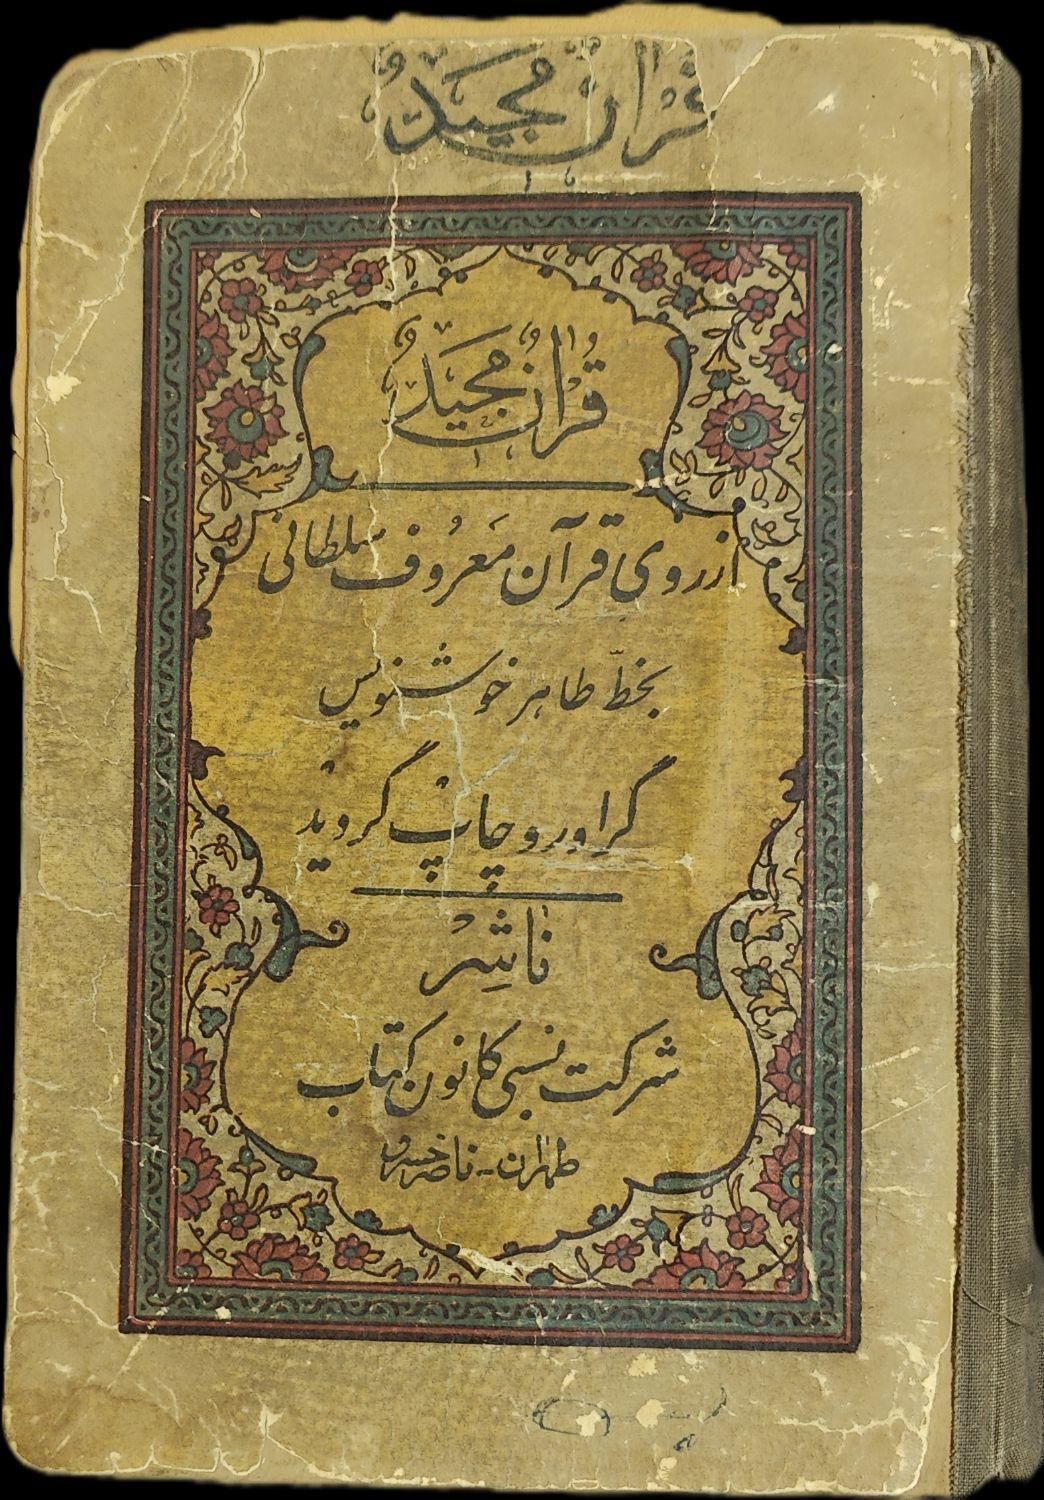 قرآن مجید
قُرآنٌ مَجیدٌ
از روی قرآن مَعرُوف سلطانی
بخطّ طاهر خوشنویس
گراور و چاپ گردید
ناشِر
شرکت نسبی کانون کتاب
طهران - ناصرخسرو